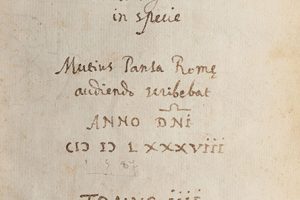 in specie
Mutius Pansa Romę
audiendo scribebat
ANNO DNI
CIƆ IƆ LXXXVIII
1587